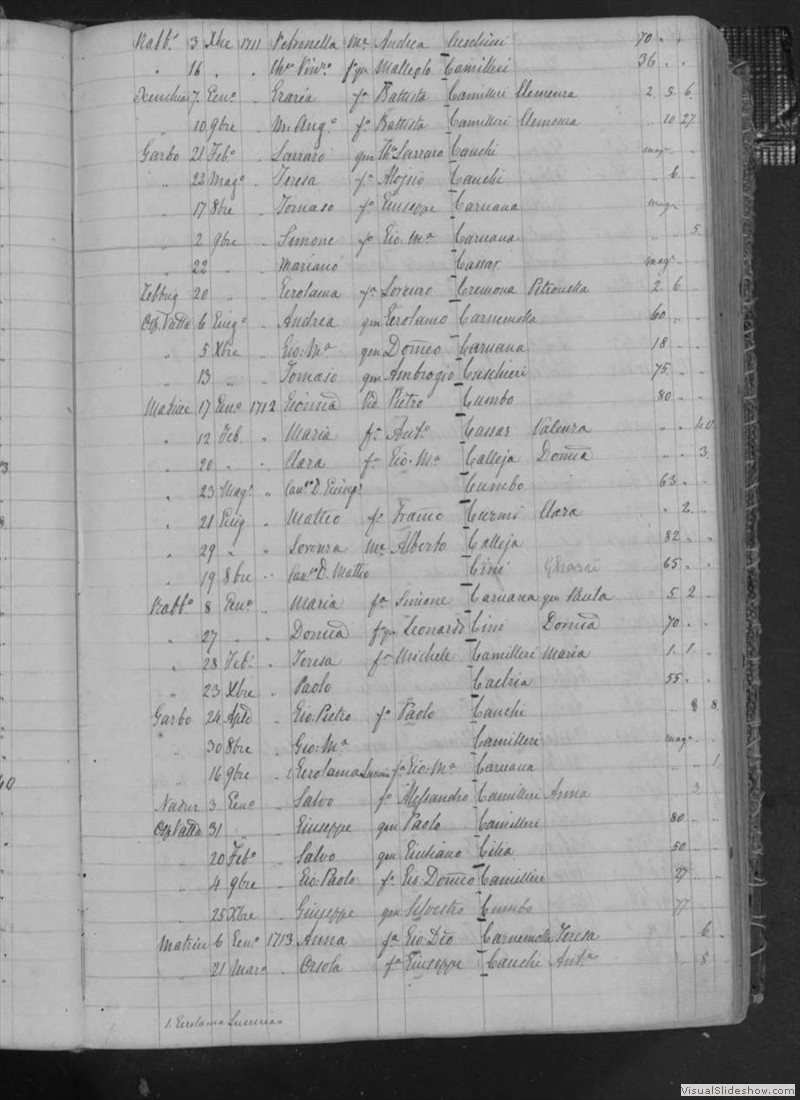 Rabb.º 3 Xbre 1711 Petronella Mᵉ Andrea Cuschieri 70 . .
" 16 " " Camilleri 36 . .
Xeuchia 7 Genº " f.ª Battista Camilleri Clemenza 2 5 6
" 10 9bre " M. Ang.ª f.ª Battista Camilleri Clemenza " 10 27
Garbo 21 Feb.º " Sarraro qm Th.º Sarraro Cauchi magr
" 23 Mag.º " Teresa f.ª Aloisio Cauchi " 6 "
" 17 8bre " Tomaso f.º Giuseppe Caruana magr
" 2 9bre " Simone f.º Gio: M.ª Caruana " " 5
" 22 " " Mariano Cassar magr
Zebbug 20 " " Gerolama f.ª Lorenzo Cremona Petronella 2 6 "
Osp. Vallª 6 Giug.º " Andrea qm Gerolamo Carnemolla 60 " "
" 5 Xbre " Gio: M.ª qm Dom̃co Caruana 18 " "
" 13 " " Tomaso qm Ambrogio Cuschieri 75 " "
Matrice 17 Genº 1712 Gioañna Vid. Pietro Cumbo 80 " "
" 12 Feb. " Maria f.ª Ant.º Cassar Valenza " " 40
" 20 " " Clara f.ª Gio: M.ª Calleja Dom̃ca " " 3
" 23 Mag.º " Can.co D. Giusep.e Cumbo 63 " "
" 21 Giug " Matteo f.º Franco Curmi Clara " 2 "
" 29 " " Lorenza Mᵉ Alberto Calleja 82 " "
" 19 8bre " Can.co D. Matteo Cini 65 " "
Rabb.º 8 Genº " Maria f.ª Simone Caruana qm Paula 5 2 "
" 27 " " Dom̃ca f. qm Leonardo Cini Dom̃ca 70 " "
" 28 Feb.º " Teresa f.ª Michele Camilleri Maria 1 1 "
" 23 Xbre " Paolo Cachia 55 " "
Garbo 24 Aple " Gio: Pietro f.º Paolo Cauchi " 8 8
" 30 8bre " Gio: M.ª Camilleri magr
" 16 9bre " 1 Gerolama Lucrezia f.ª Gio: M.ª Caruana " " 1
Nadur 3 Genº " Salvo f.º Alessandro Camilleri Anna 3 "
Osp. Vallª 31 " " Giuseppe qm Paolo Camilleri 80 " "
" 20 Feb.º " Salvo qm Giuliano Cilia 50 " "
" 4 9bre " Gio: Paolo f.º Gio: Dom̃co Camilleri 27 " "
" 25 Xbre " Giuseppe qm Silvestro Cumbo 77 " "
Matrice 6 Genº 1713 Anna f.ª Gio Dm̃o Carnemolla Teresa " 6 "
" 21 Marº " Orsola f.ª Giuseppe Cauchi Ant.ª " 8 "
1. Gerolama Lucrezia
VisualSlideshow.com